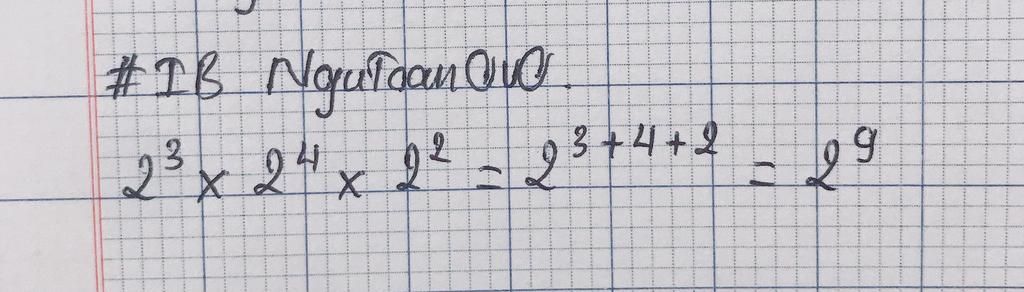 #IB NguToanOvO.
2³ × 2⁴ × 2² = 2³⁺⁴⁺² = 2⁹